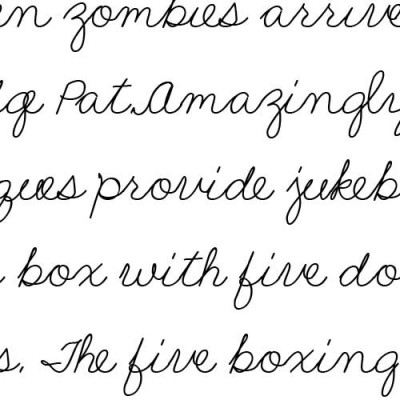 en zombies arrive
dge Pat. Amazingly
ques provide jukeb
box with five do
s. The five boxing